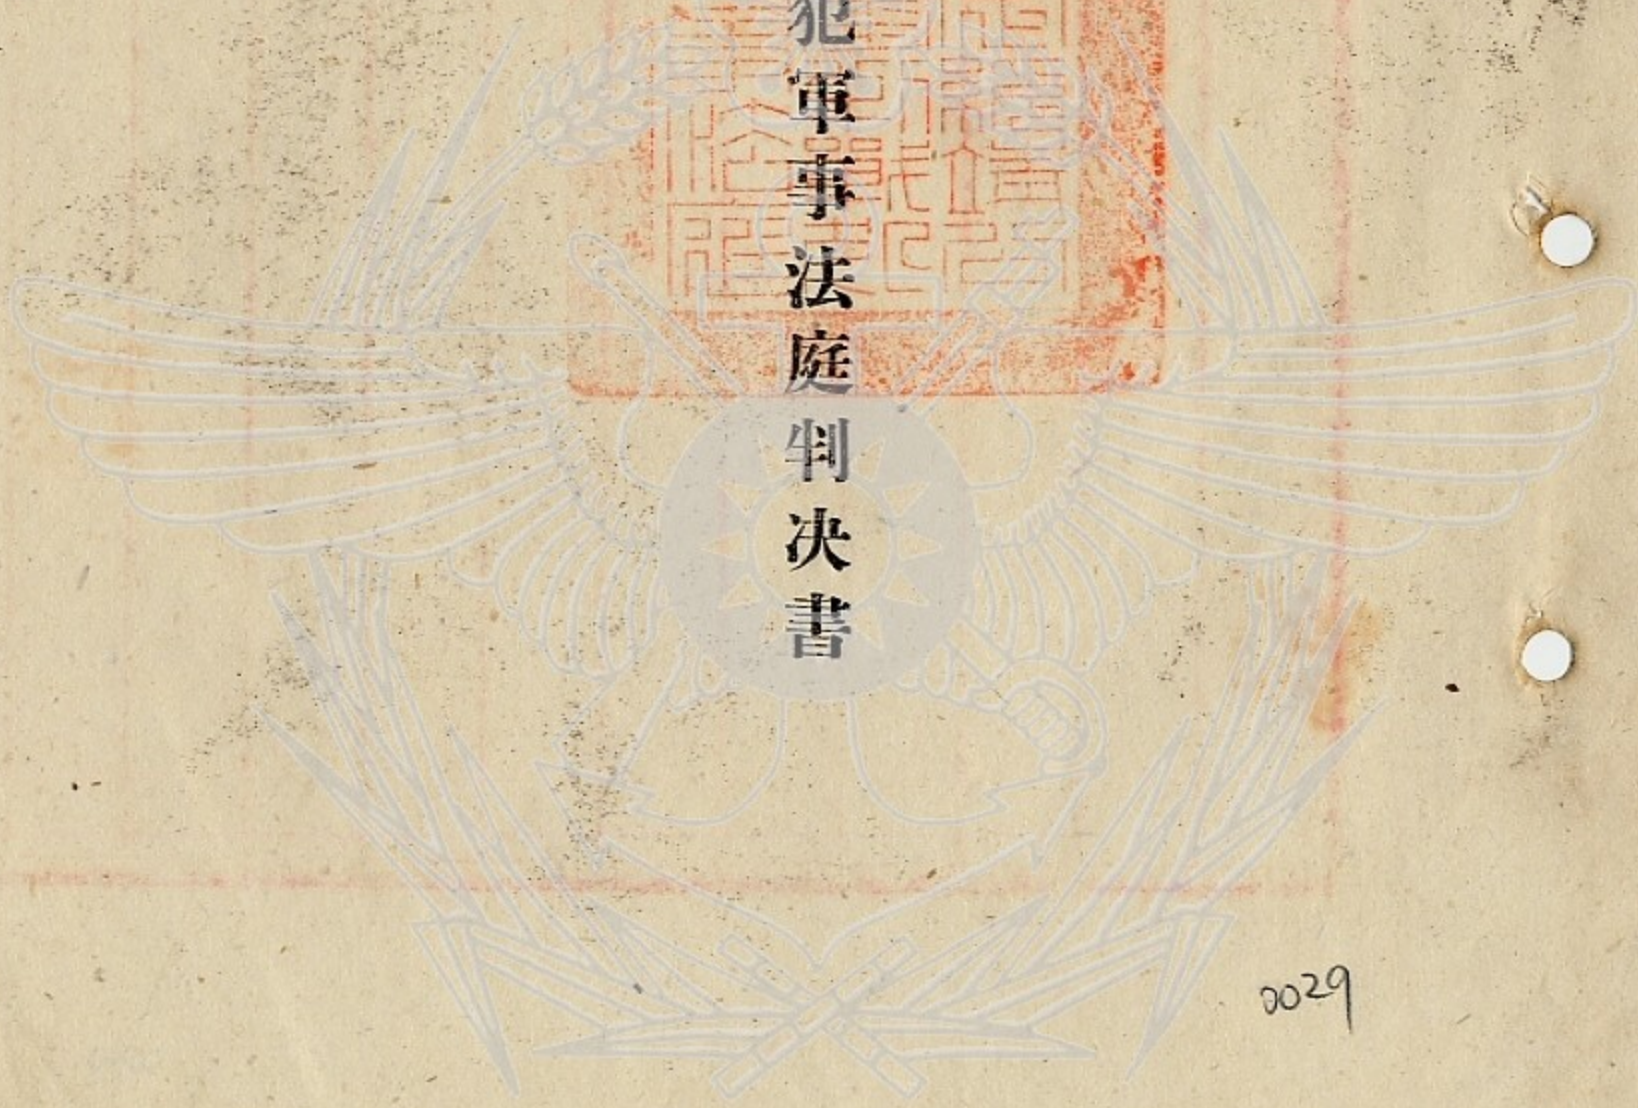 犯軍事法庭判决書
0029